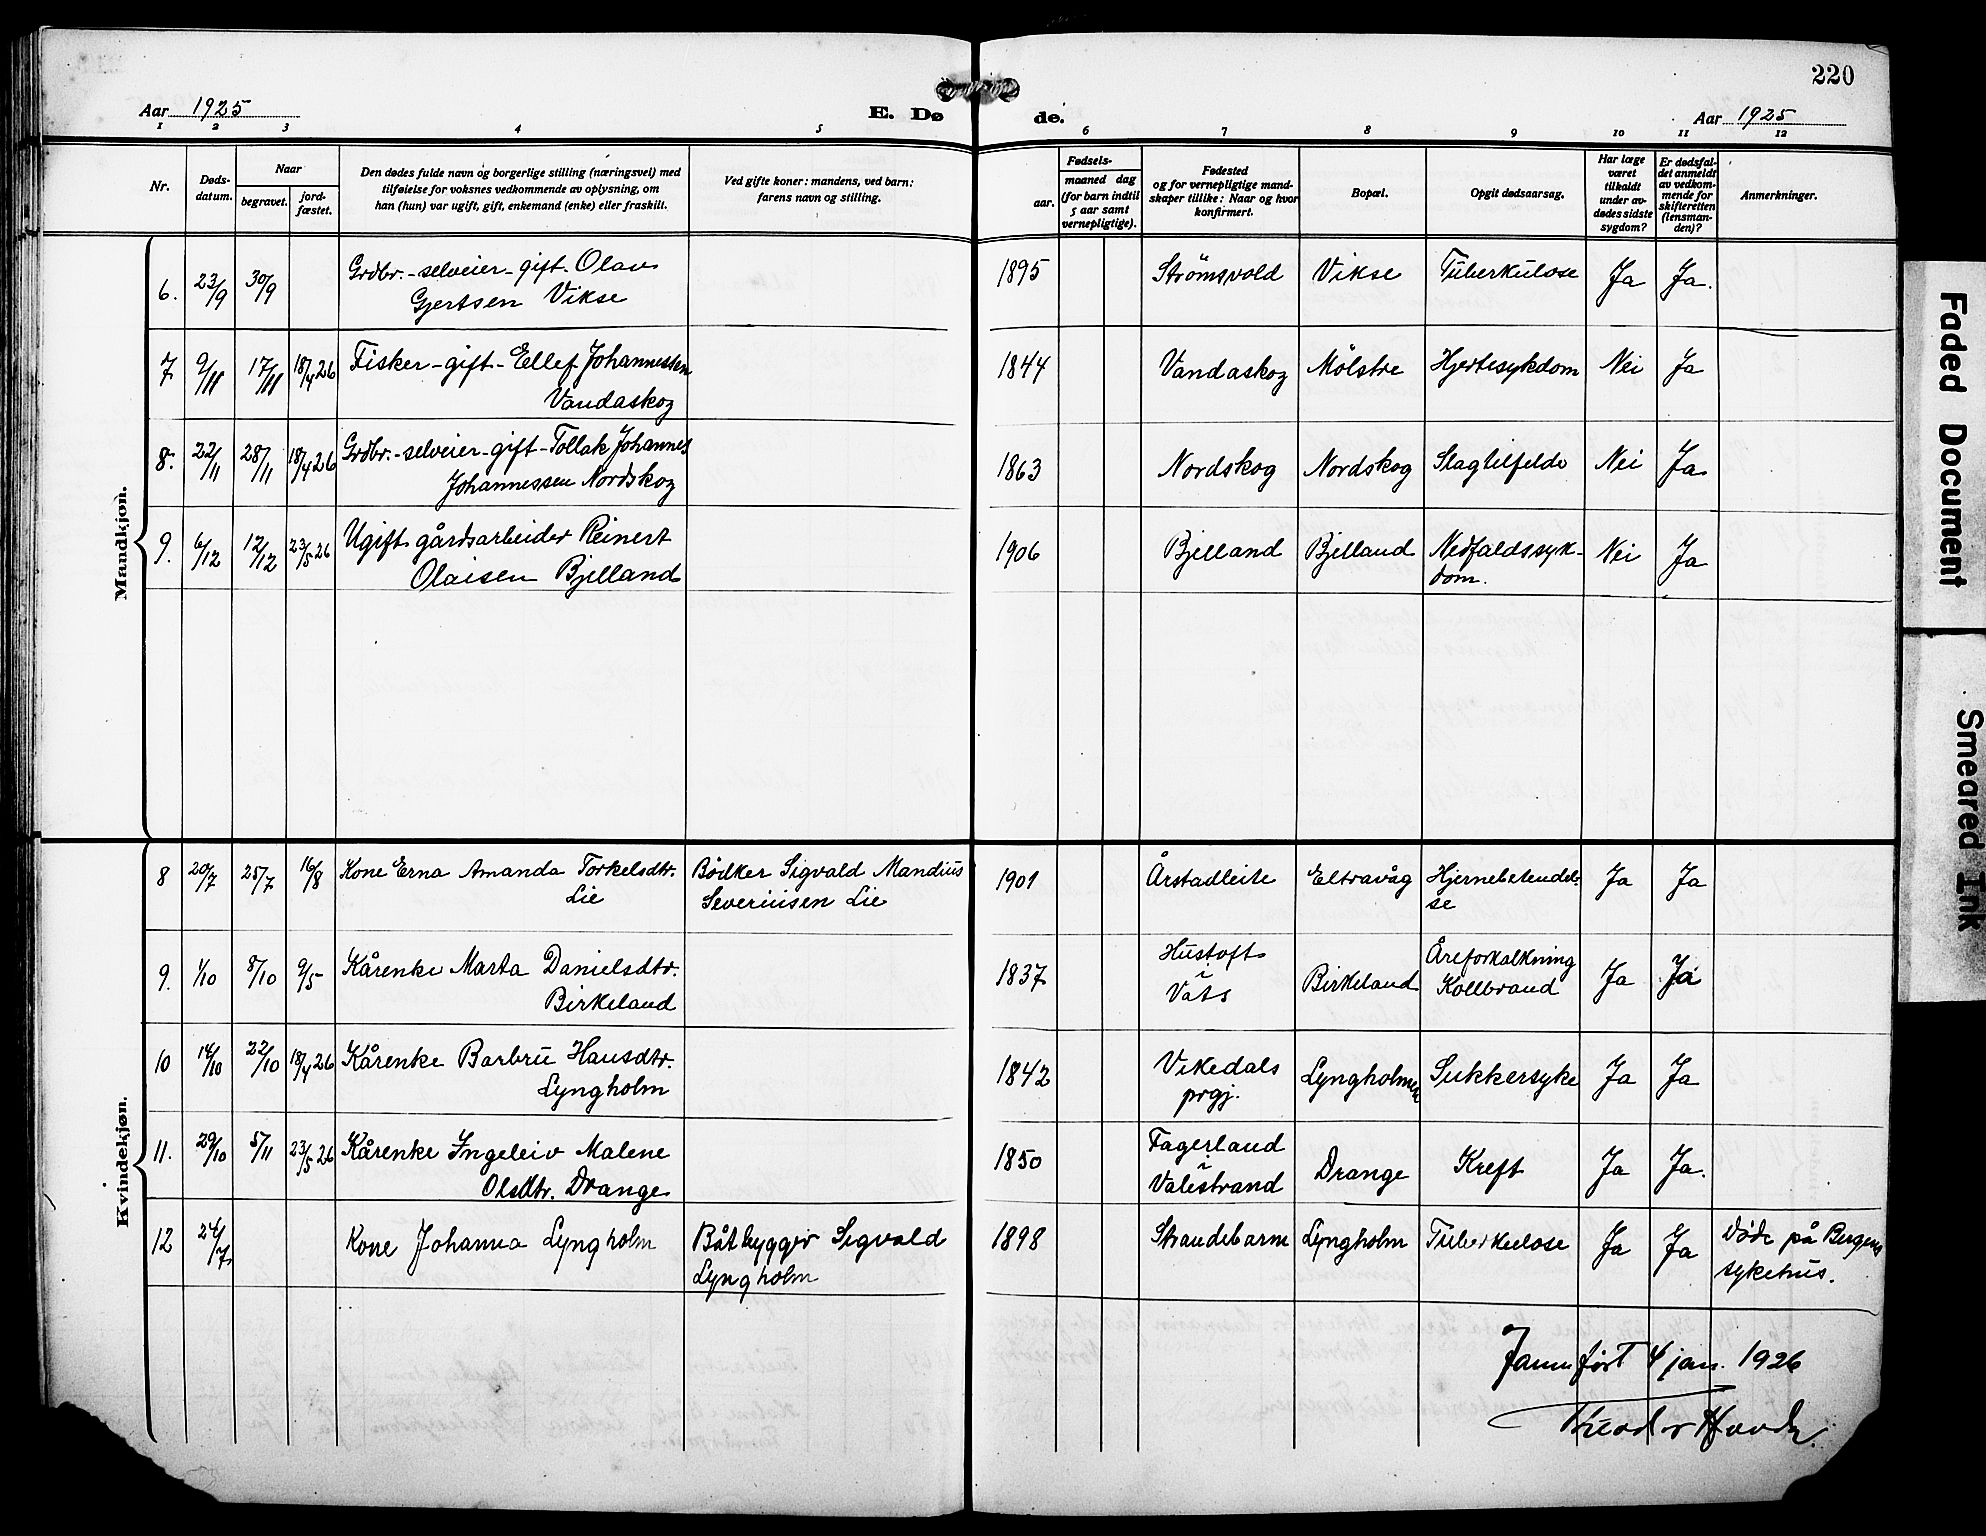 220
Aar 1925
E. Dø
de.
Aar 1925
1 2 3 4 5 6 7 8 9 10 11 12
Nr.
Døds-
datum.
Naar
begravet.
jord-
fæstet.
Den dødes fulde navn og borgerlige stilling (næringsvei) med
tilføielse for voksnes vedkommende av oplysning, om
han (hun) var ugift, gift, enkemand (enke) eller fraskilt.
Ved gifte koner: mandens, ved barn:
farens navn og stilling.
Fødsels-
aar.
maaned dag
(for barn indtil
5 aar samt
vernepligtige).
Fødested
og for vernepligtige mand-
skaper tillike: Naar og hvor
konfirmert.
Bopæl.
Opgit dødsaarsag.
Har læge
været
tilkaldt
under av-
dødes sidste
sygdom?
Er dødsfal-
det anmeldt
av vedkom-
mende for
skifteretten
(lensman-
den)?
Anmerkninger.
Mandkjøn.
6. 23/9 30/9 Grdbr.-selveier-gift. Olav
Gjertsen Vikse
1895 Strømsvold Vikse Tuberkulose Ja Ja.
7 9/11 17/11 18/4 26 Fisker-gift-Ellef Johannessen
Vandaskog
1844 Vandaskog Mølstre Hjertesykdom Nei Ja
8. 22/11 28/11 18/4 26 Grdbr.-selveier-gift-Tollak Johannes
Johannessen Nordskog
1863 Nordskog Nordskog Slagtilfelde Nei Ja
9. 6/12 12/12 23/5 26 Ugift gårdsarbeider Reinert
Olaisen Bjelland
1906 Bjelland Bjelland Nedfaldssyk-
dom. Nei Ja
Kvindekjøn.
8 20/7 25/7 16/8 Kone Erna Amanda Torkelsdtr.
Lie
Bødker Sigvald Mandius
Severinsen Lie
1901 Årstadleite Eltravåg Hjernebetendel-
se Ja Ja
9. 1/10 8/10 9/5 Kårenke Marta Danielsdtr.
Birkeland
1837 Hustoft
i
Vats Birkeland Åreforkalkning
Kollbrand Ja Ja
10 14/10 22/10 18/4 26 Kårenke Barbru Hansdtr.
Lyngholm
1842 Vikedals
prgj. Lyngholmen Sukkersyke Ja Ja
11. 29/10 5/11 23/5 26 Kårenke Ingeleiv Malene
Olsdtr. Drange
1850 Fagerland
i
Valestrand Drange Kreft Ja Ja.
12 24/7. Kone Johanna Lyngholm
Båtbygger Sigvald
Lyngholm
1898 Strandebarm Lyngholm Tuberkulose Ja Ja Døde på Bergens
sykehus.
Jamnført 4 jan. 1926
Theodor
Faded Document
Smeared Ink